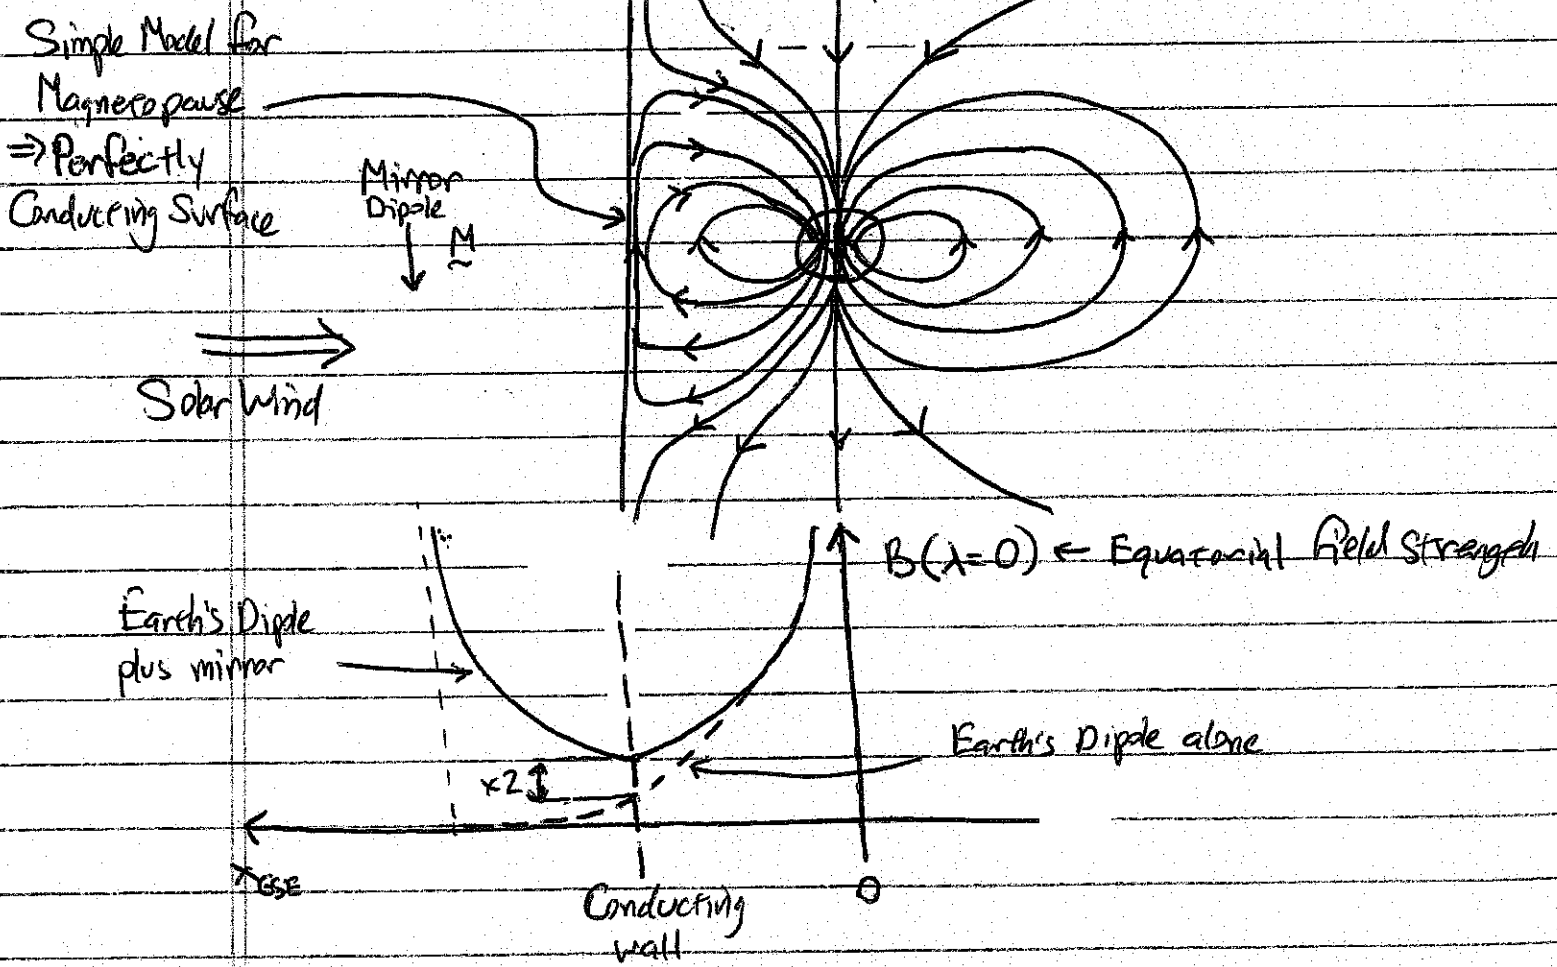 Simple Model for
Magnetopause
⇒ Perfectly
Conducting Surface
Mirror
Dipole
M
Solar Wind
B(λ=0) ← Equatorial field Strength
Earth's Dipole
plus mirror
Earth's Dipole alone
x2
X GSE
O
Conducting
wall